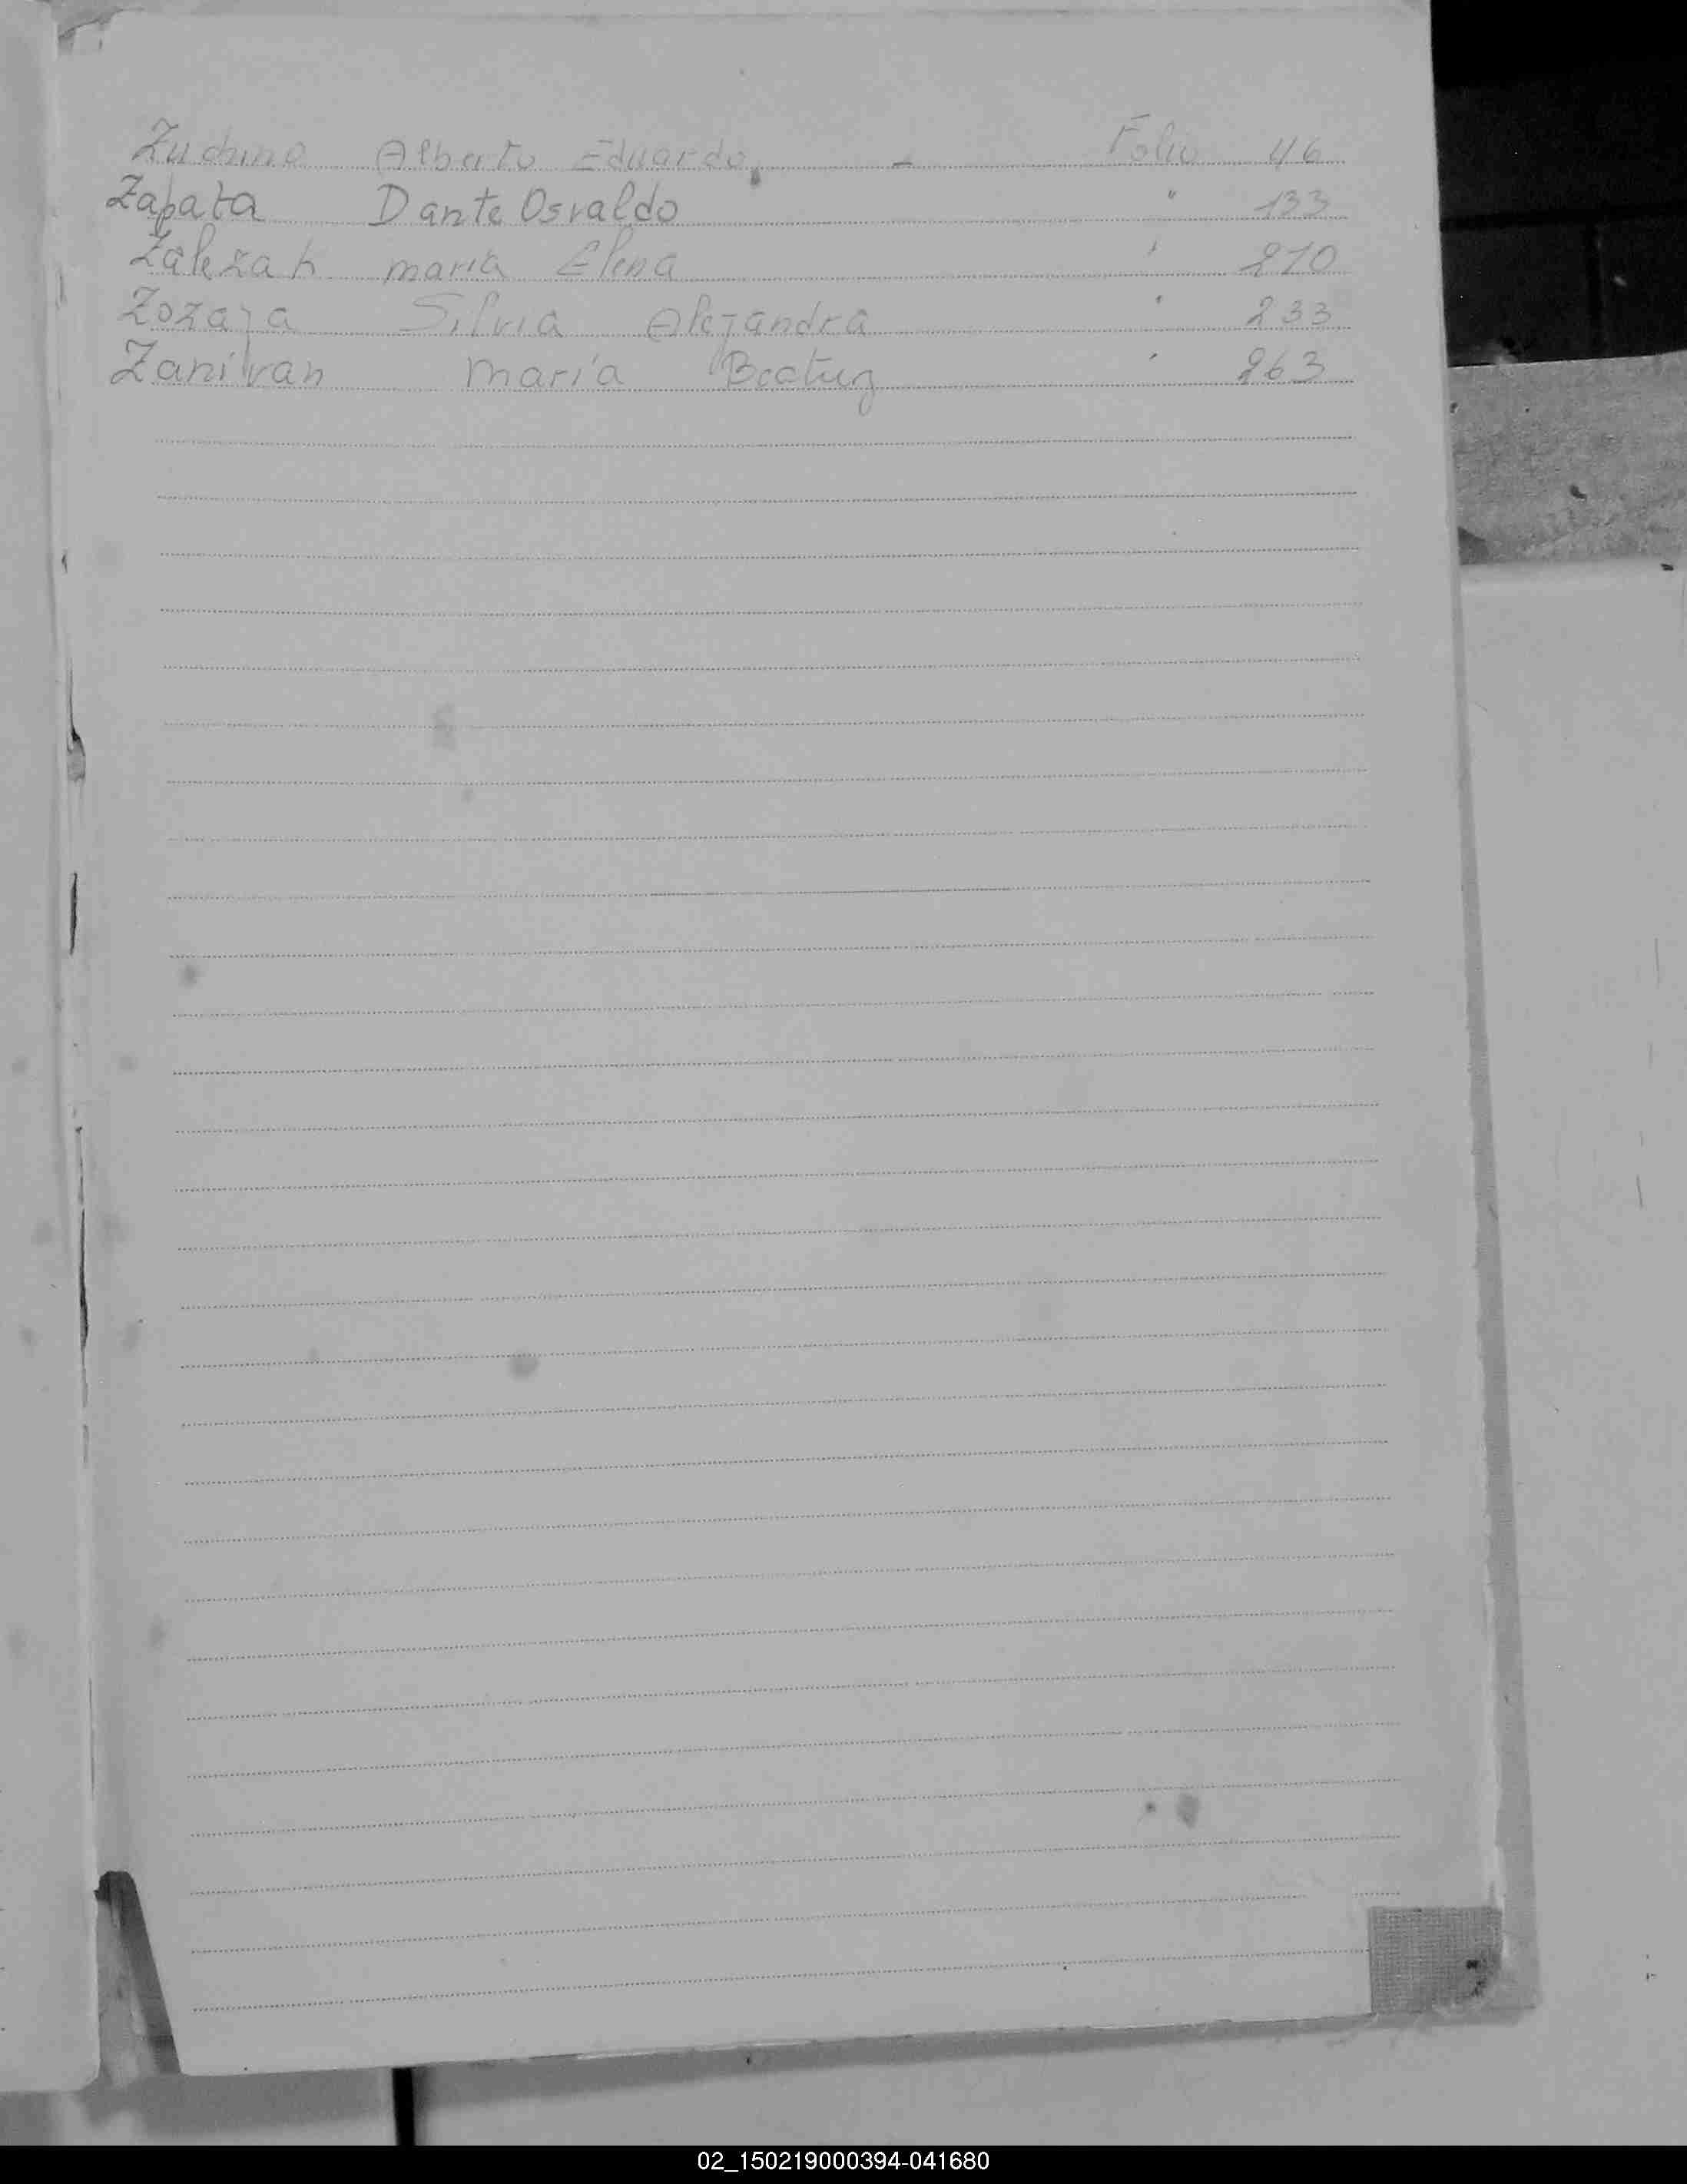 Zuchino Alberto Eduardo. - Folio 46
Zapata Dante Osvaldo " 133
Zalezak maria Elena " 210
Zozaya Silvia Alejandra " 233
Zanivan María Beatriz " 263
02_150219000394-041680